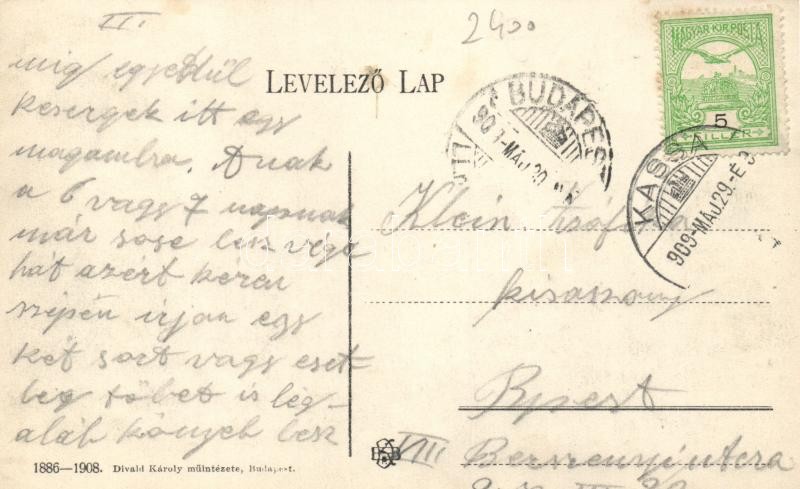 III.
2400
míg egyedűl
kesergek itt egy
magamba. Annak
a 6 vagy 7 napnak
már sose lesz vége
hát azért kérem
szépen írjon egy
két sort vagy eset-
leg többet is leg-
alább könnyeb lesz
LEVELEZŐ LAP
BUDAPEST
MAGYAR KIR. POSTA
5
FILLÉR
KASSA
909-MAJ.29.-É
Klein Zsófika
kisasszony
Bpest
VIII
Berzenyi utcza
1886—1908. Divald Károly műintézete, Budapest.